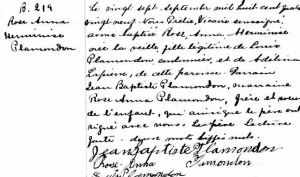 B. 219
Rose Anna
Herminise
Plamondon
Le vingt sept septembre mil huit cent quatre
vingt neuf Nous Prêtre Vicaire soussigné
avons baptisé Rose Anna Herminise
née la veille, fille légitime de Louis
Plamondon cordonnier, et de Adelina
Lapierre, de cette paroisse. Parrain
Jean Baptiste Plamondon, marraine
Rose Anna Plamondon, frère et soeur
de l'enfant, qui ainsi que le père ont
signé avec nous. Lecture
faite. mots biffés nuls.
Jean Baptiste Plamondon
Rose Anna Plamondon
Plamondon